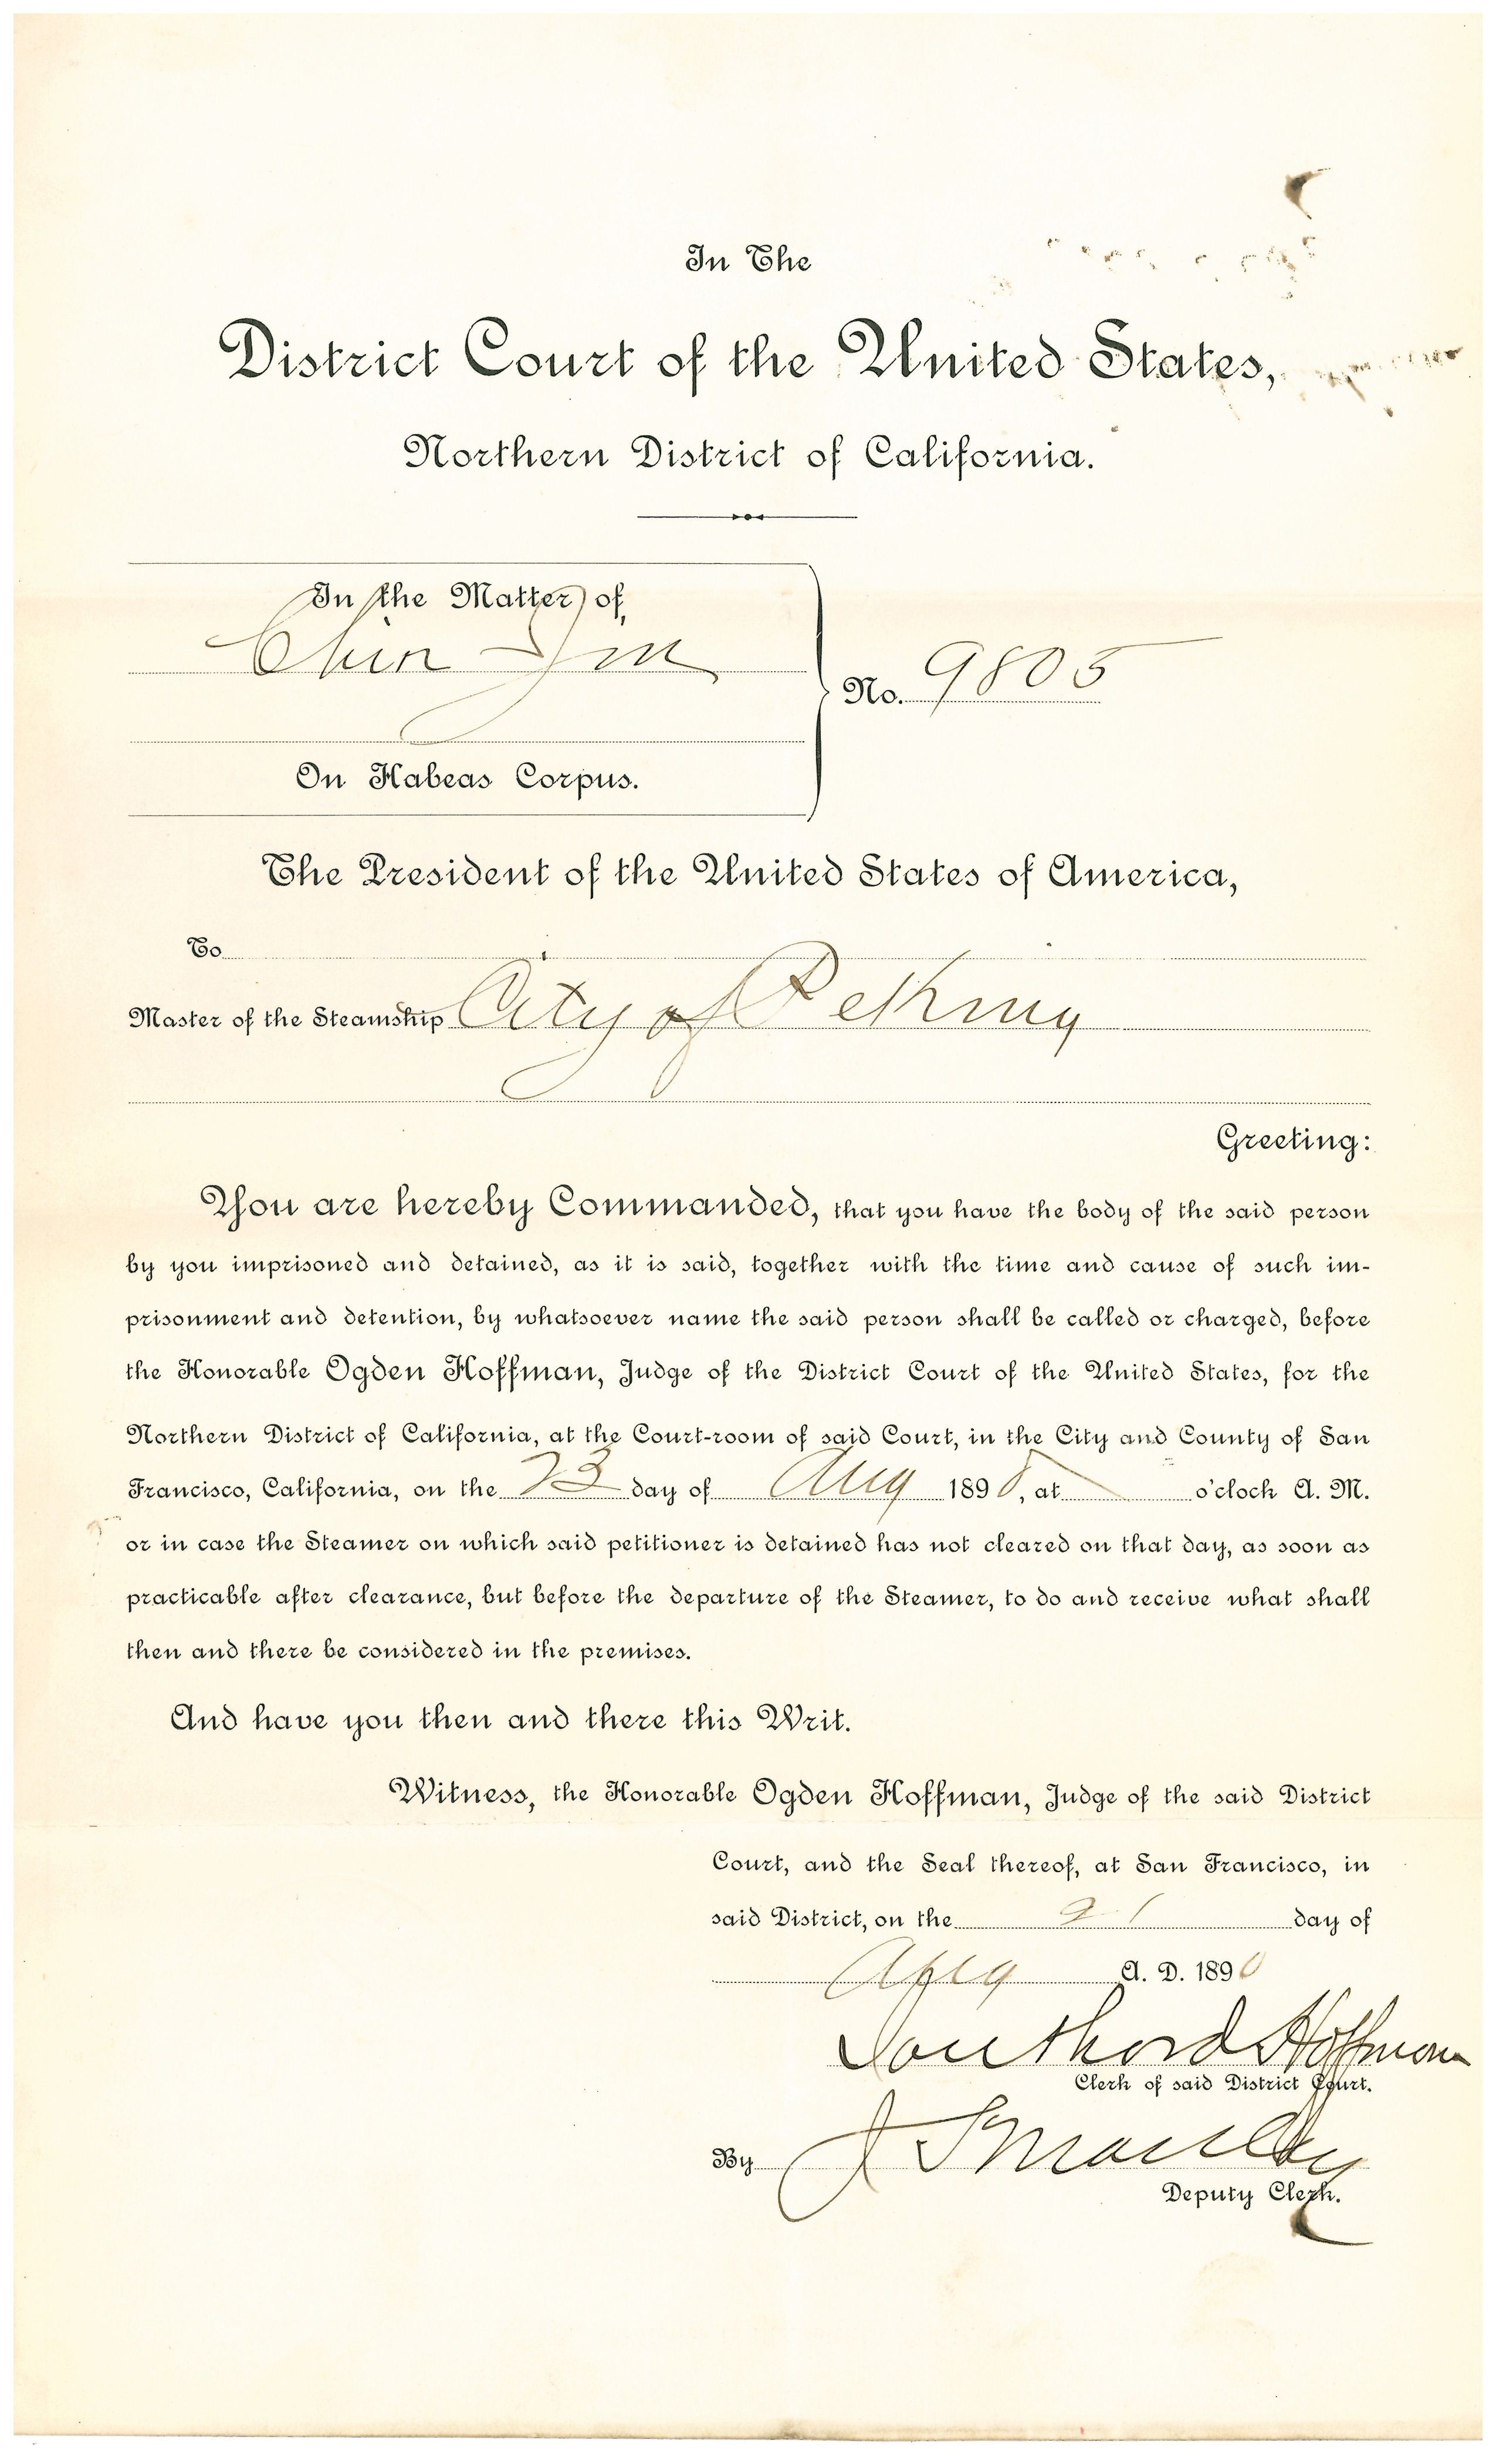 In The
District Court of the United States,
Northern District of California.
In the Matter of,
Chin Jim
No. 9805
On Habeas Corpus.
The President of the United States of America,
To
Master of the Steamship City of Peking
Greeting:
You are hereby Commanded, that you have the body of the said person
by you imprisoned and detained, as it is said, together with the time and cause of such im-
prisonment and detention, by whatsoever name the said person shall be called or charged, before
the Honorable Ogden Hoffman, Judge of the District Court of the United States, for the
Northern District of California, at the Court-room of said Court, in the City and County of San
Francisco, California, on the 23 day of Aug 1890, at o'clock A. M.
or in case the Steamer on which said petitioner is detained has not cleared on that day, as soon as
practicable after clearance, but before the departure of the Steamer, to do and receive what shall
then and there be considered in the premises.
And have you then and there this Writ.
Witness, the Honorable Ogden Hoffman, Judge of the said District
Court, and the Seal thereof, at San Francisco, in
said District, on the 21 day of
Aug A. D. 1890
Southard Hoffman
Clerk of said District Court.
By J S Manley
Deputy Clerk.